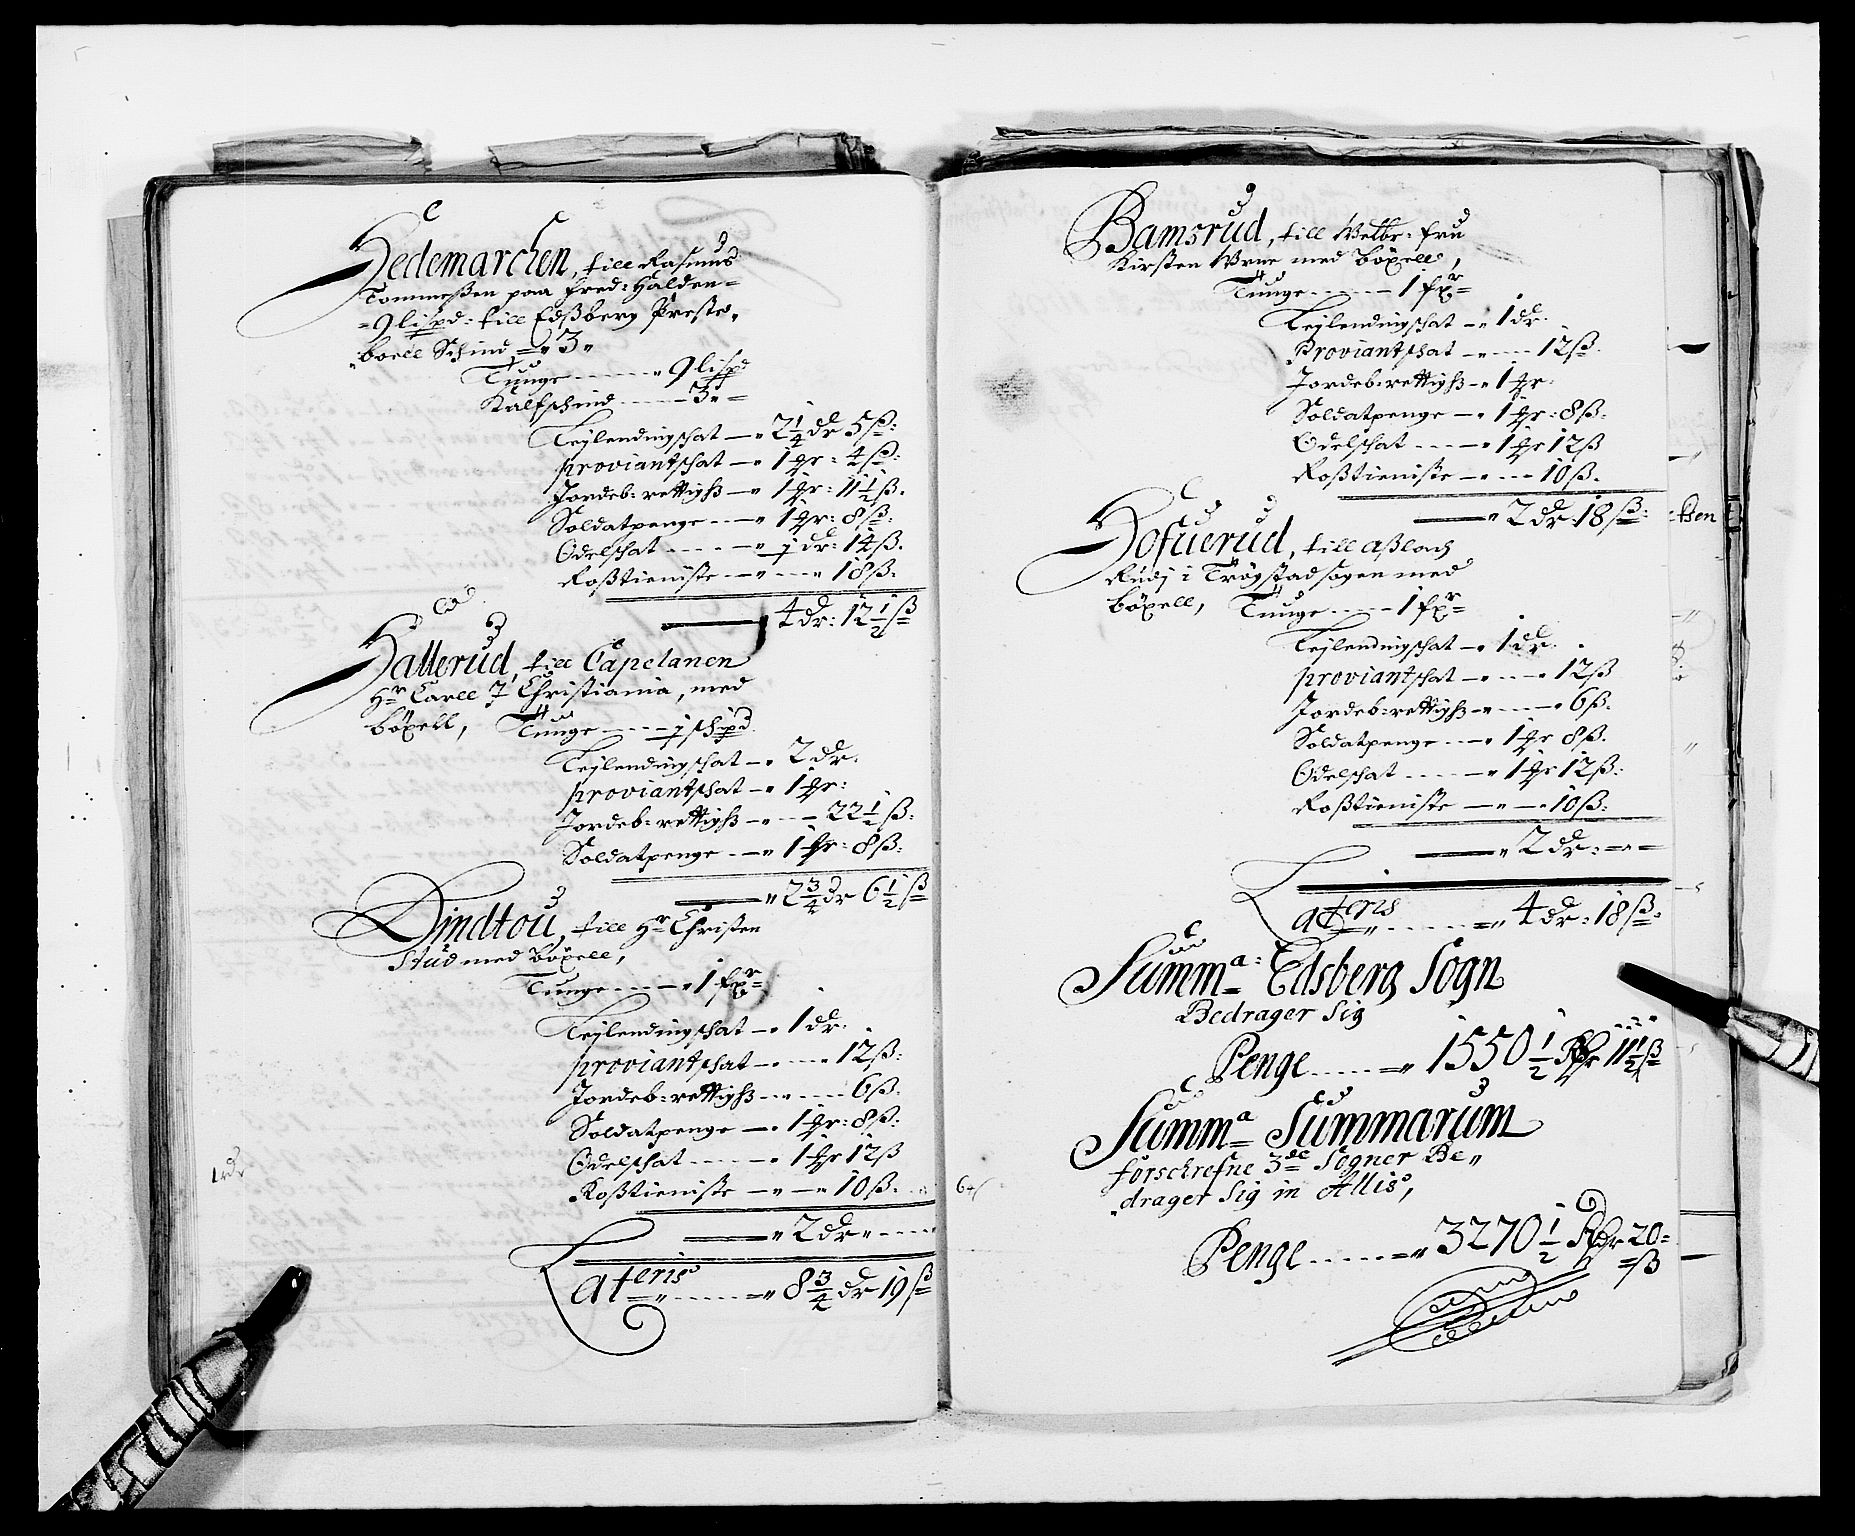 Hedemarchen, till Rasmus
Tommeßen paa Fred: Halden=
=9 lispd: till Edßberg Præste„
„boell Schind =„ 3„
Tunge ------ „ 9 lispd
Kalfschind ----- 3„=
Leylendingschat —„ 2¼ dr 5 ß:
proviantschat —„ 1 ħr: 4 ß:
Jordeb:rettigh —„ 1 ħr: 11½ ß.
Soldatpenge ---„ 1 ħr: 8 ß:
Odelschat -----„ j dr: 14 ß.
Roßtieniste —„---„ 18 ß:
4 dr: 12½ ß
Hallerud, till Capelanen
Hr Carll J Christiania, med
böxell, Tunge ---- j schpd
Leylendingschat —„ 2 dr:
proviantschat —„ 1 ħr:
Jordeb:rettigh —„-— 22½ ß:
Soldatpenge --—„ 1 ħr: 8 ß:
„ 2¾ dr 6½ ß
Dindtou, till Hr Christen
Stud med böxell,
Tunge ----„ 1 fxr=
Leylendingschat —„ 1 dr:
proviantschat —„---„ 12 ß:
Jordeb:rettigh —„---- 6 ß.
Soldatpenge —„ 1 ħr: 8 ß:
Odelschat -----„ 1 ħr 12 ß
Roßtieniste —„—„ 10 ß.
„ 2 dr „
Lateris ------=„ 8¾ dr 19 ß
Bamsrud, till Welbr: fru
Kirsten Wrne med böxell,
Tunge ----- 1 fxr=
Leylendingschat —„ 1 dr.
Proviantschat —„--- 12 ß.
Jordeb:rettigh —„ 1 ħr:
Soldatpenge —„ 1 ħr: 8 ß:
Odelschat ---—„ 1 ħr 12 ß
Roßtieniste —„—„ 10 ß.
„ 2 dr: 18 ß:
Hofuerud, till Aßloch
Rudj i Trögstad sogen med
böxell, Tunge ---- 1 fxr=
Leylendingschat —„ 1 dr.
proviantschat —„---„ 12 ß
Jordeb:rettigh —„----„ 6 ß.
Soldatpenge ---„ 1 ħr 8 ß.
Odelschat ----—„ 1 ħr 12 ß:
Roßtieniste —„—„ 10 ß:
„ 2 dr: =„=
Lateris ------=„ 4 dr: 18 ß:
Summa: Edsberg Sogn
Bedrager Sig
Penge ----=„ 1550½ Rdr 11½ ß
Summa Summarum
forschrefne 3de Sogner Be„
„drager Sig in Allis,
Penge -----=„ 3270½ Rdr 20=
=ß